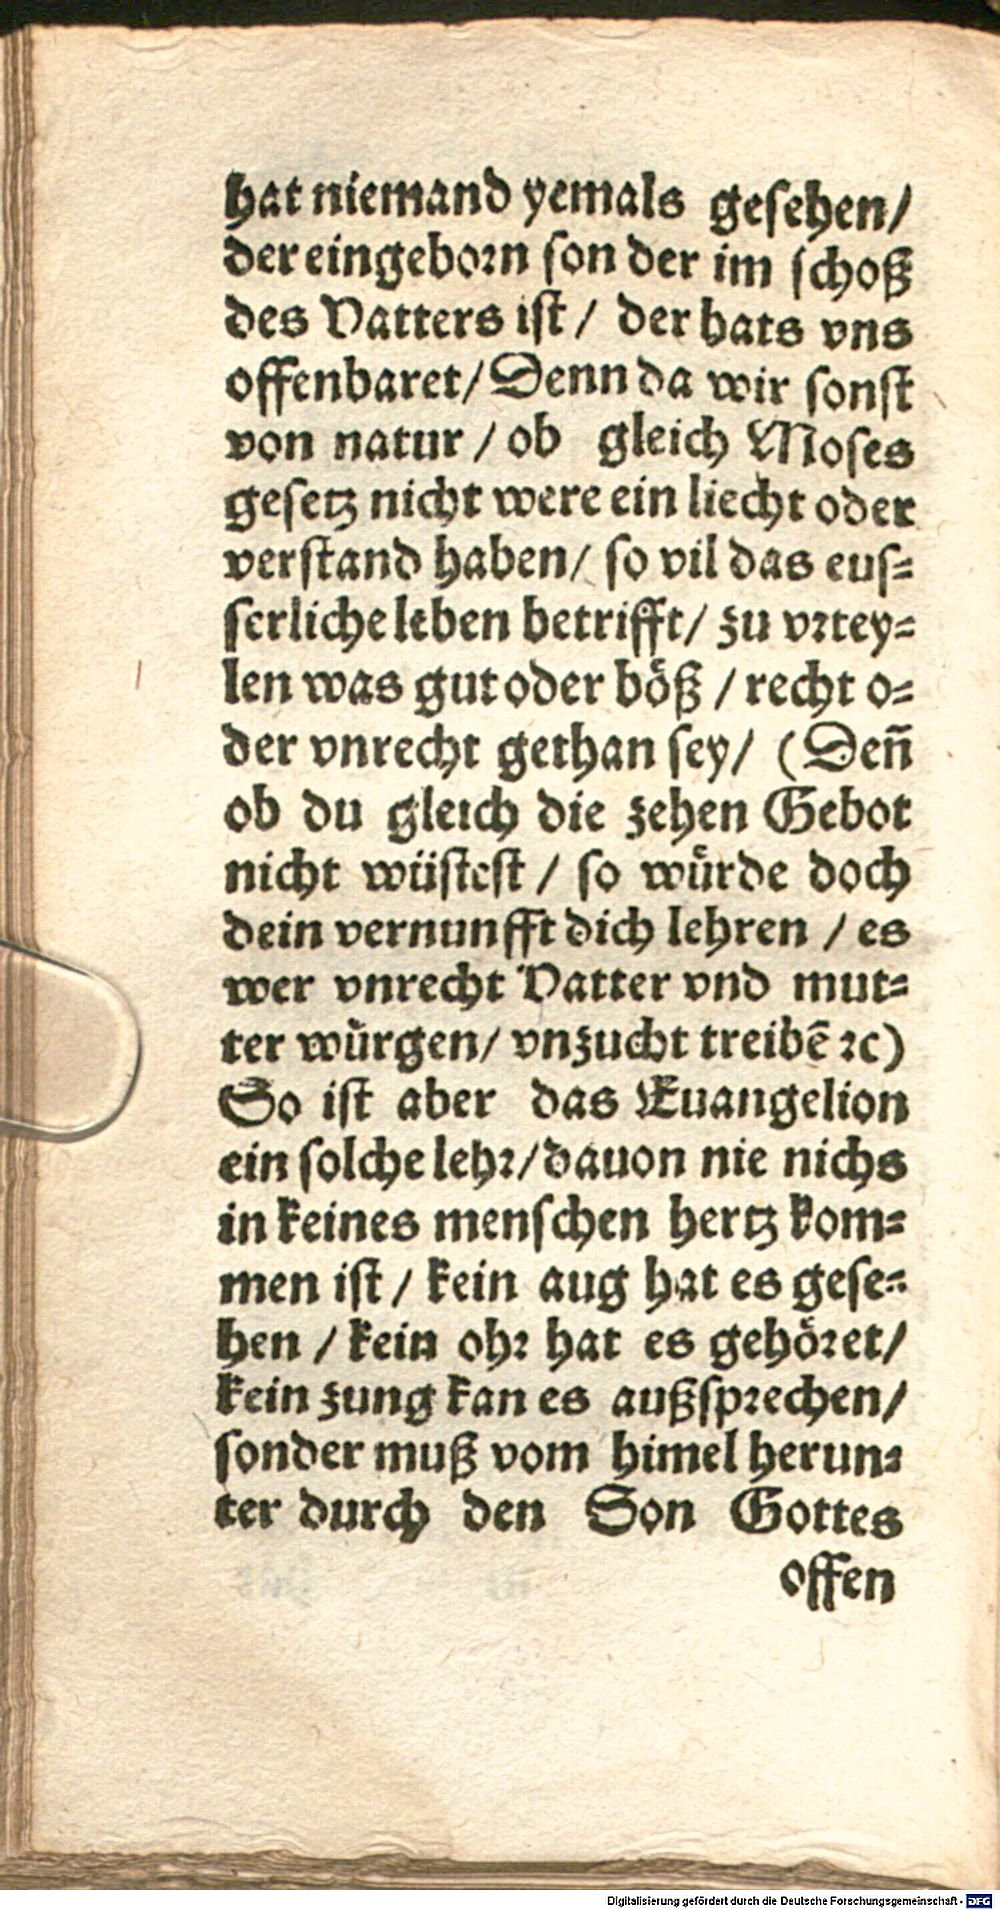 hat niemand yemals gesehen/
der eingeborn son der im schoß
des Vatters ist/ der hats vns
offenbaret/ Denn da wir sonst
von natur / ob gleich Moses
gesetz nicht were ein liecht oder
verstand haben/ so vil das eus-
serliche leben betrifft/ zu vrtey-
len was gut oder böß / recht o-
der vnrecht gethan sey/ (Deñ
ob du gleich die zehen Gebot
nicht wüstest / so würde doch
dein vernunfft dich lehren / es
wer vnrecht Vatter vnd mut-
ter würgen/ vnzucht treibē ꝛc)
So ist aber das Euangelion
ein solche lehr/ dauon nie nichs
in keines menschen hertz kom-
men ist/ kein aug hat es gese-
hen / kein ohr hat es gehöret/
kein zung kan es außsprechen/
sonder muß vom himel herun-
ter durch den Son Gottes
offen
Digitalisierung gefördert durch die Deutsche Forschungsgemeinschaft - DFG